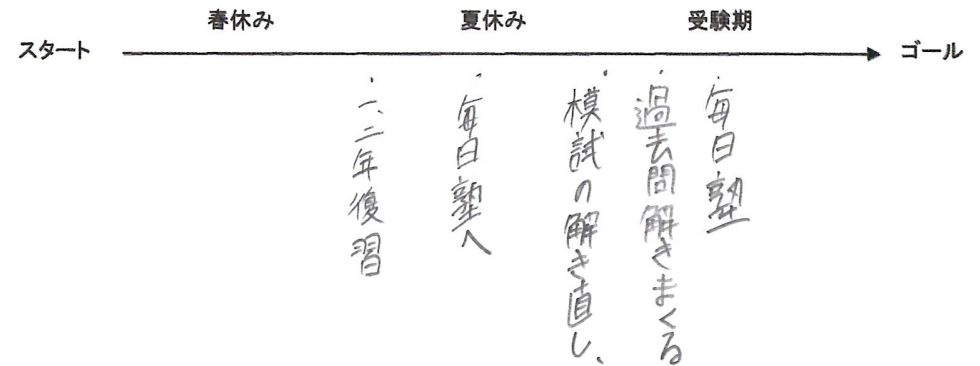 春休み
夏休み
受験期
スタート
ゴール
・一、二年復習
・毎日塾へ
・模試の解き直し、
・過去問解きまくる
・毎日塾